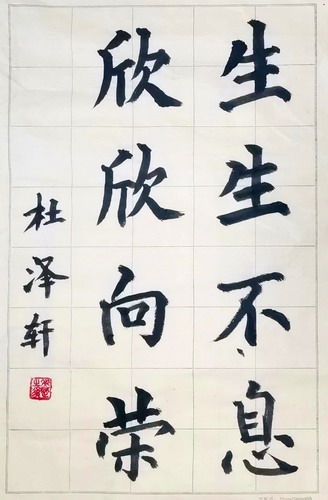 生生不息
欣欣向荣
杜泽轩